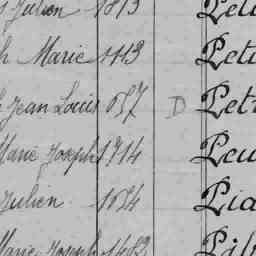 Julien 1813 Pet
h Marie 1113 Pet
h Jean Louis 657 D Pet
Marie Joseph 1714 Peu
Julien 1654 Pia
Marie Joseph 1482 Pib